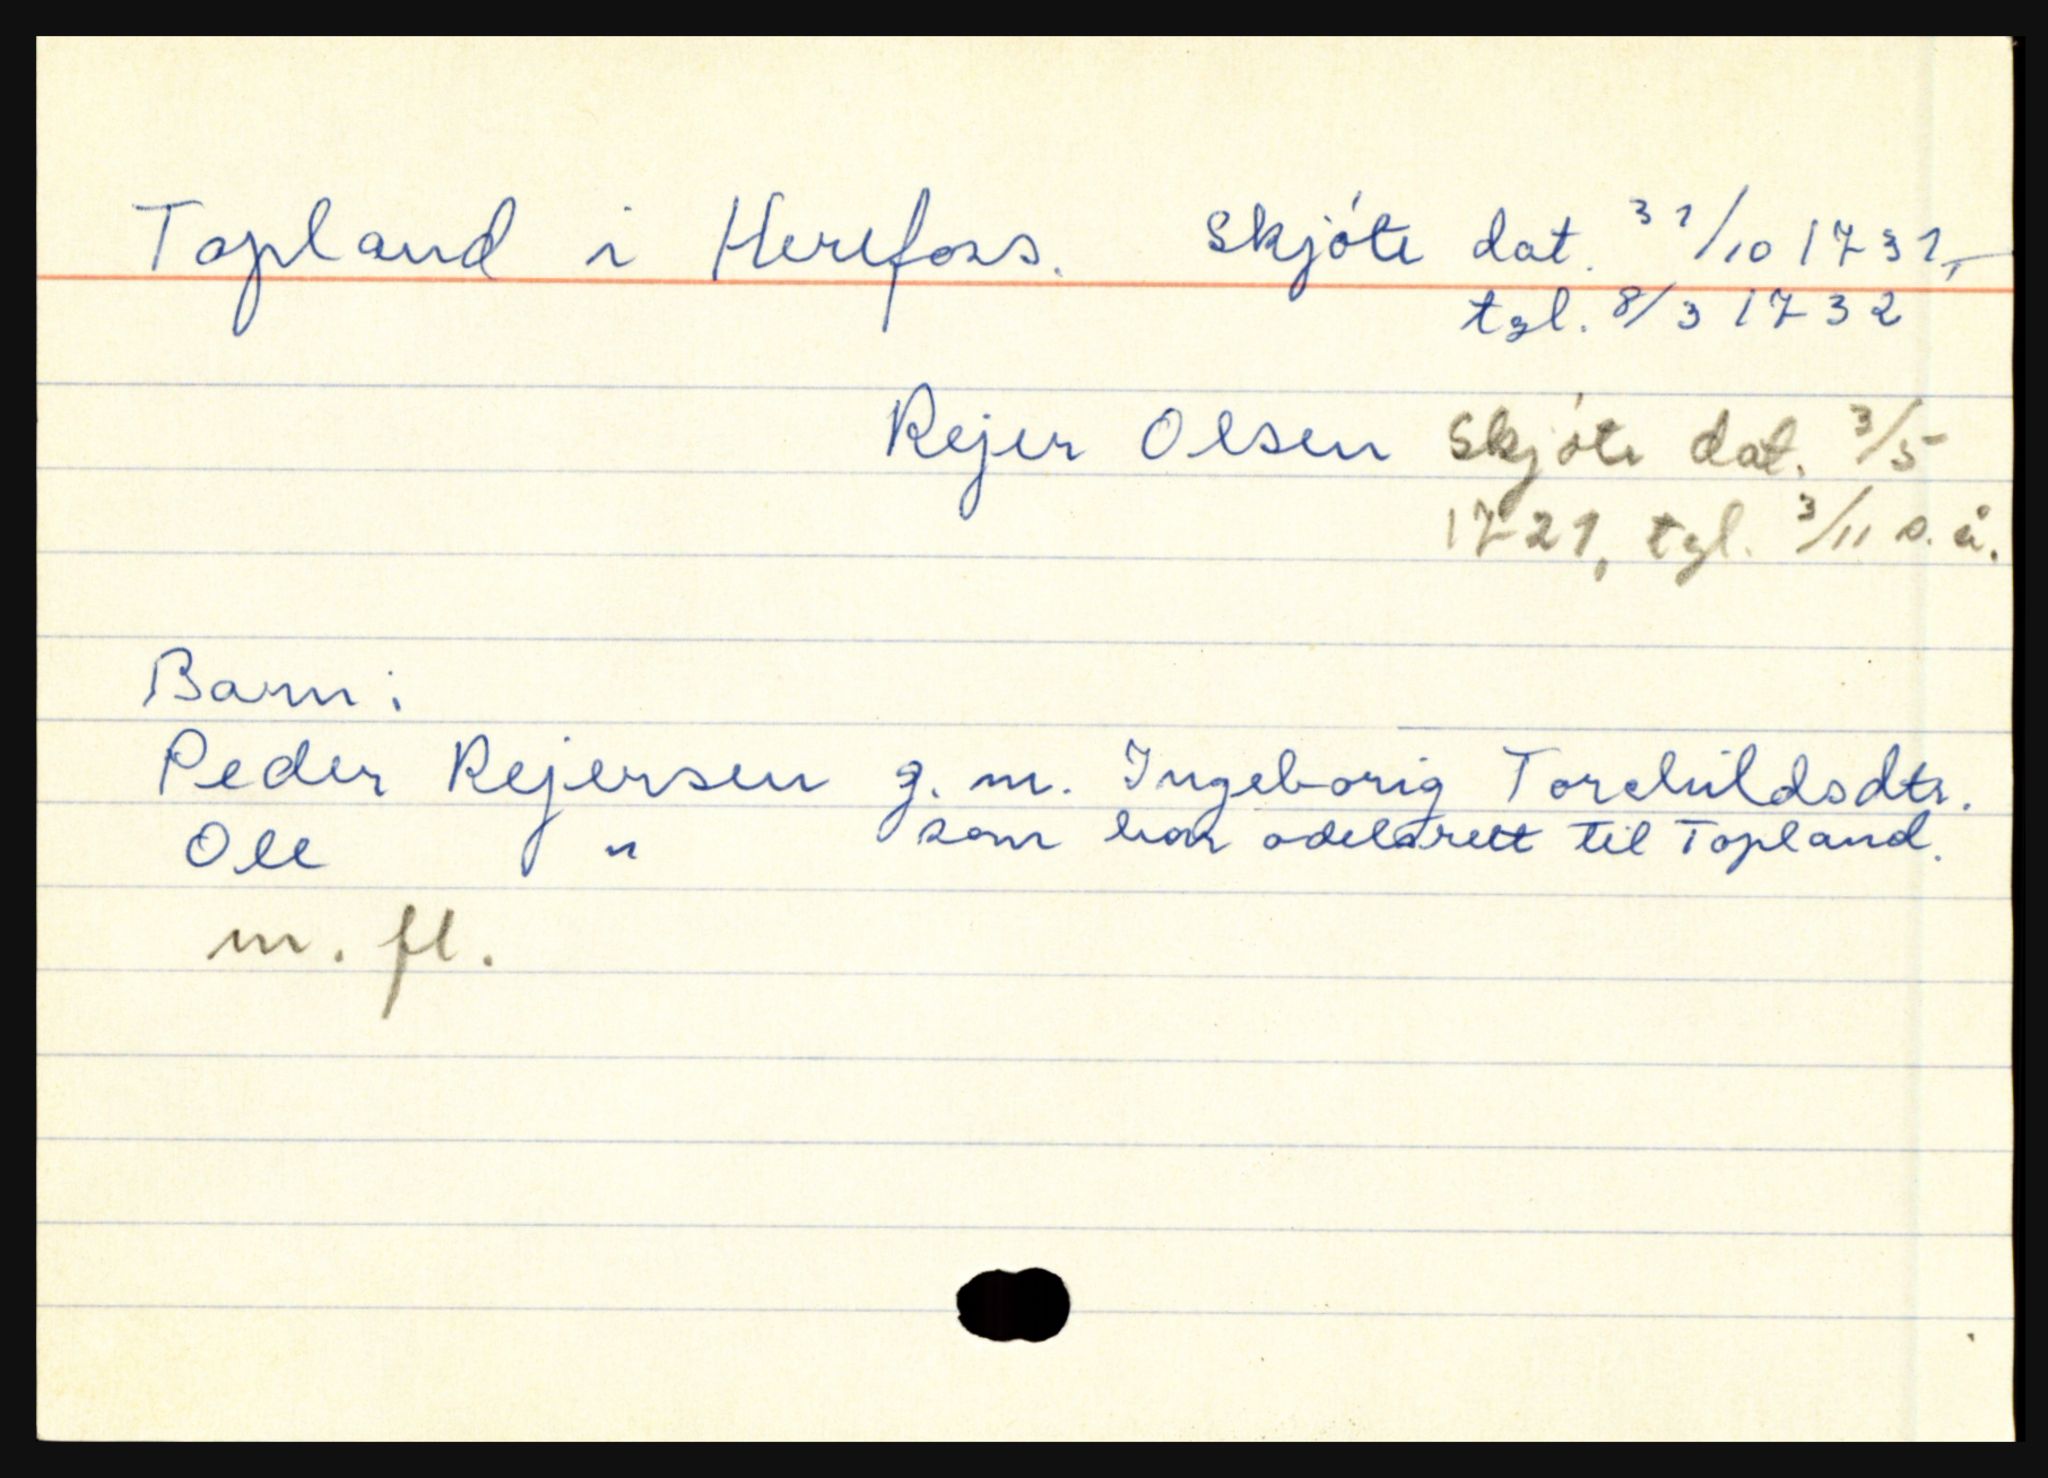 Topland i Herefoss. Skjóte dat. 31/10 1731,
tgl. 8/3 1732
Rejer Olsen Skjóte dat. 3/5
1721, tgl. 3/11 s. å.
Barn:
Peder Rejersen g. m. Ingeborig Torchildsdtr.
Ole " som har odelsrett til Topland.
m. fl.